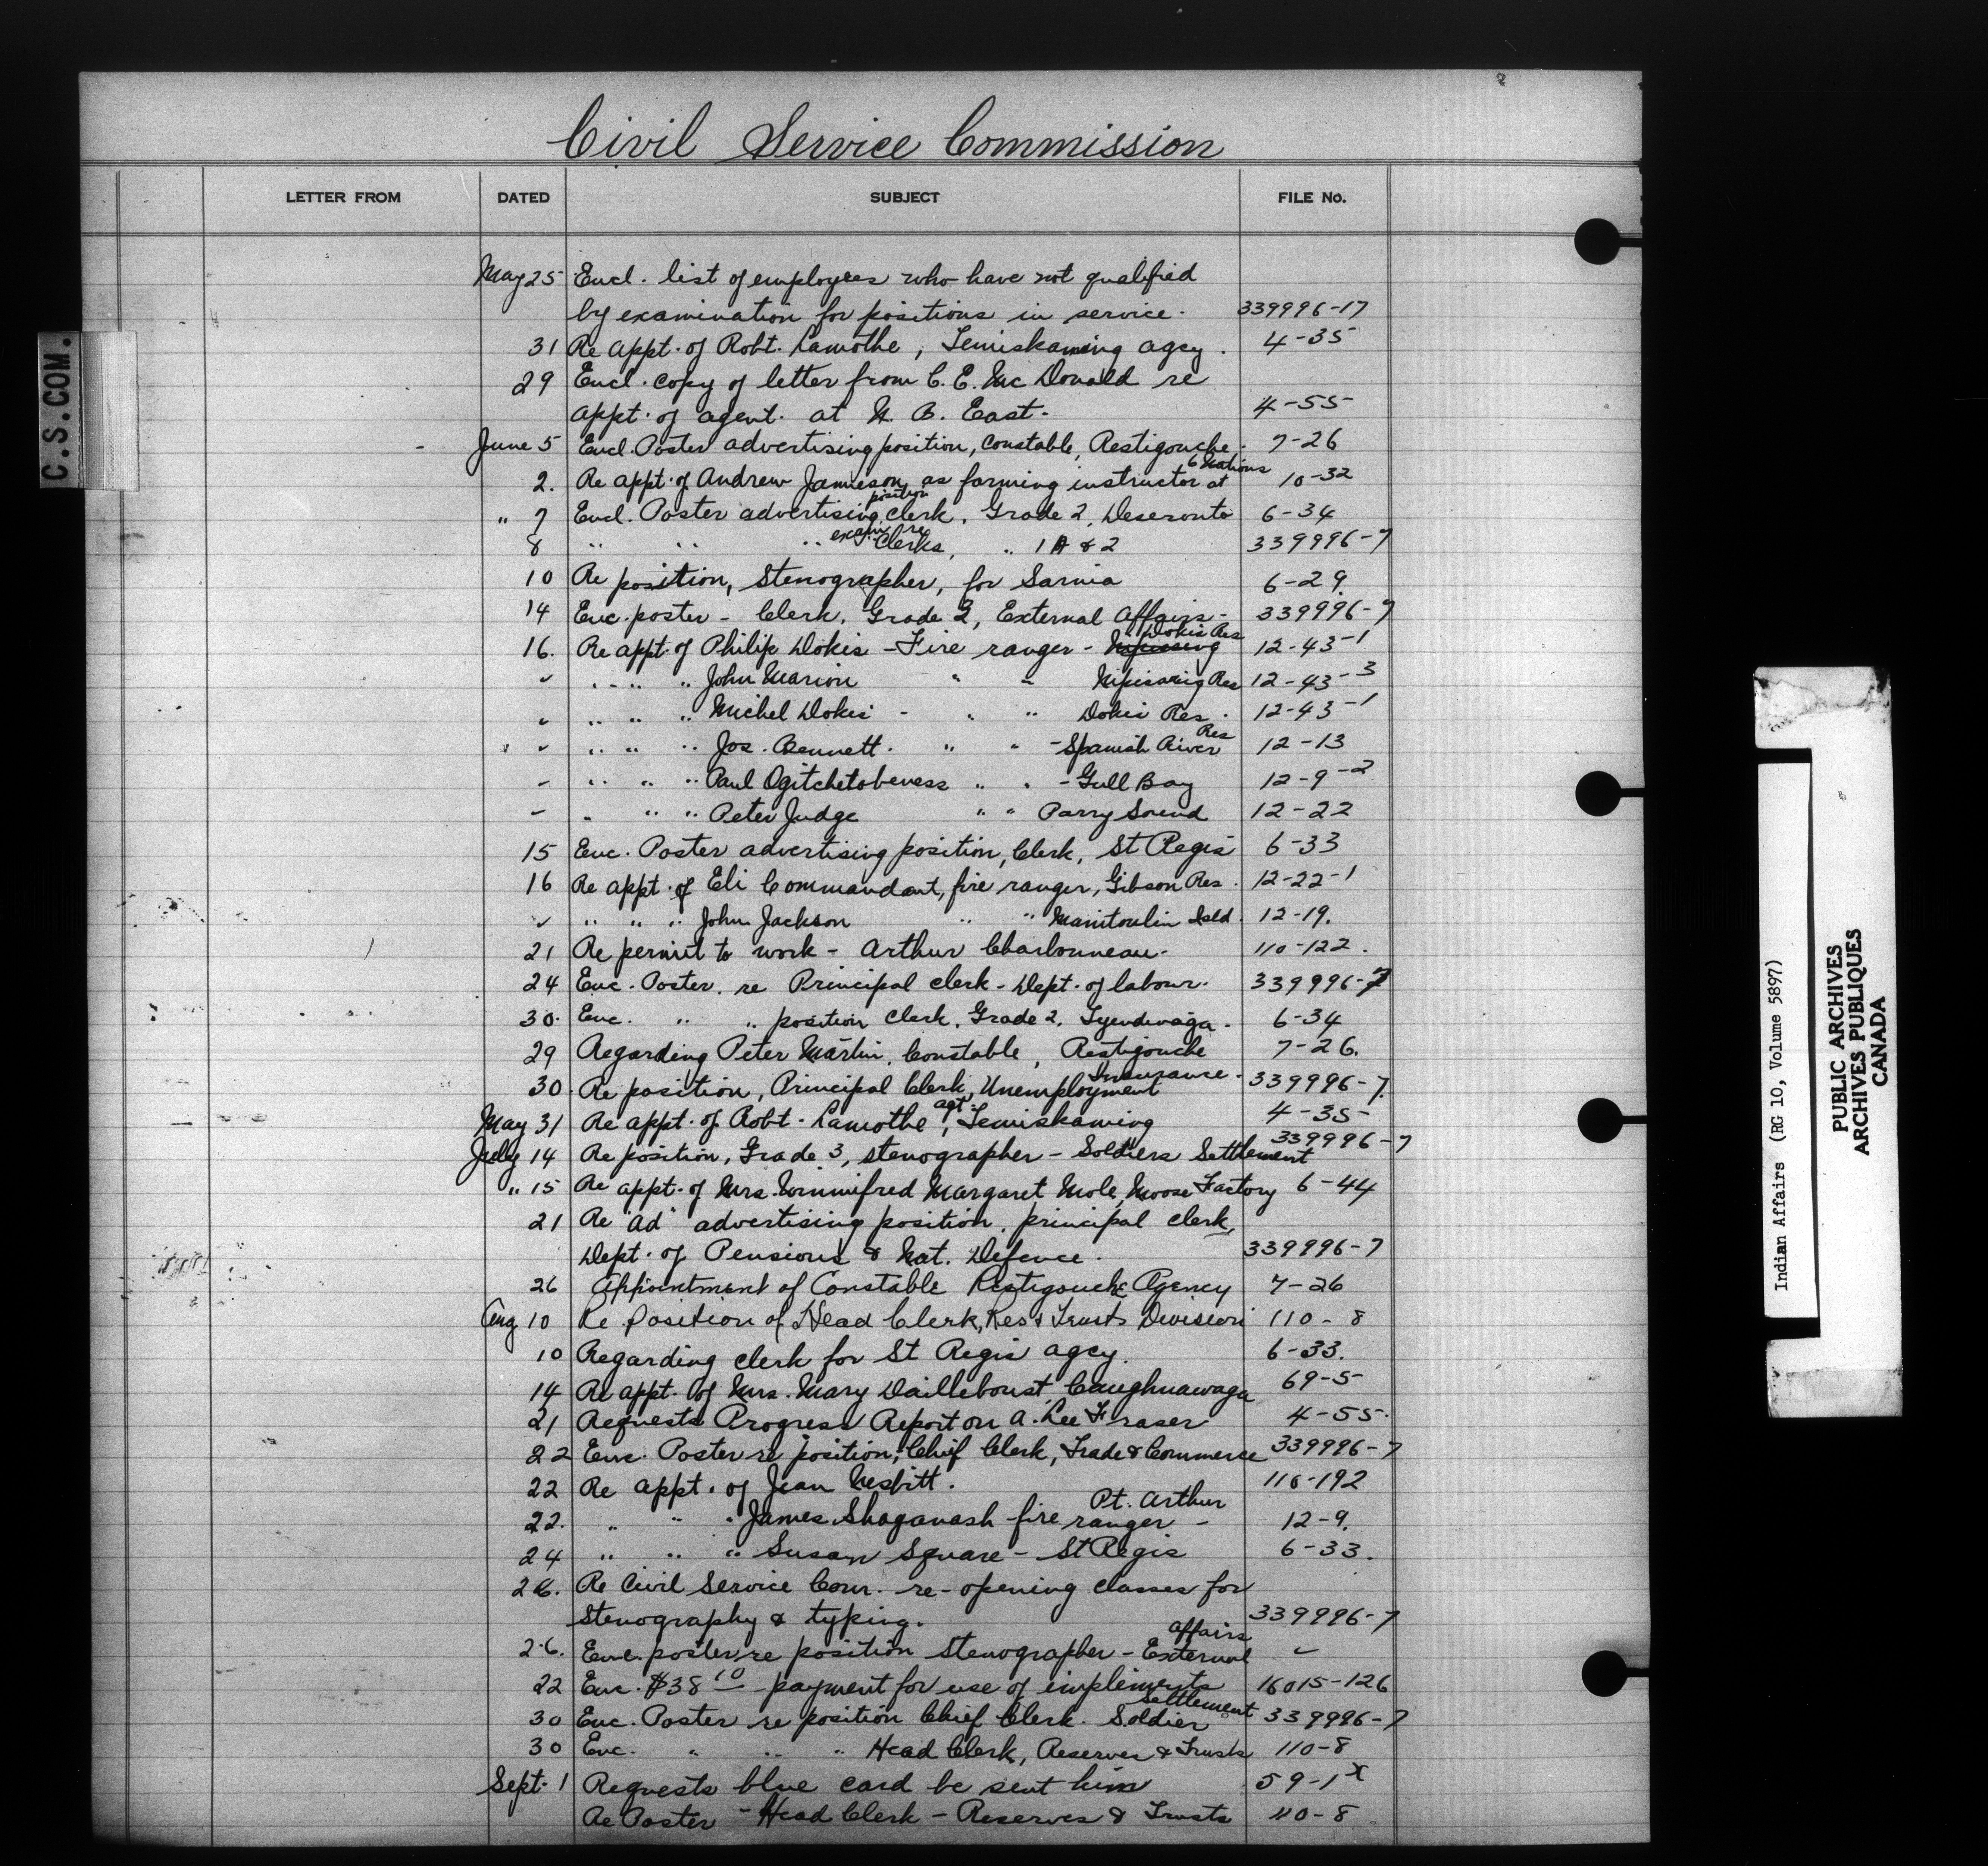 Civil Service Commission
LETTER FROM DATED SUBJECT FILE No.
May 25 Encl. list of employees who have not qualified
by examination for positions in service. 339996-17
31 Re appt. of Robt. Lamothe, Temiskaming agcy. 4-35
29 Encl. copy of letter from C. E. McDonald re
appt. of agent. at N. B. East. 4-55
June 5 Encl. Poster advertising position, Constable, Restigouche. 7-26
2. Re appt. of Andrew Jamieson, as farming instructor at 6 Nations 10-32
" 7 Encl. Poster advertising position Clerk, Grade 2, Deseronto 6-34
8 " " " exam re Clerks, " 1A & 2 339996-7
10 Re position, Stenographer, for Sarnia 6-29.
14 Enc. poster - Clerk, Grade 2, External Affairs - 339996-7
16. Re appt. of Philip Dokis - Fire ranger - Nipissing Dokis Res 12-43-1
" " " " John Marion " " Nipissing Res 12-43-3
" " " " Michel Dokis - " " Dokis Res. 12-43-1
" " " " Jos. Bennett. " " - Spanish River Res 12-13
" " " " Paul Ogitchetobeness " " - Gull Bay 12-9-2
" " " " Peter Judge " " Parry Sound 12-22
15 Enc. Poster advertising position, Clerk, St Regis 6-33
16 Re appt. of Eli Commandant, fire ranger, Gibson Res. 12-22-1
" " " " John Jackson " " Manitoulin Isld. 12-19.
21 Re permit to work - Arthur Charbonneau. 110-122.
24 Enc. Poster. re Principal clerk - Dept. of labour. 339996-7
30. Enc. " " position Clerk, Grade 2, Tyendinaga. 6-34
29 Regarding Peter Martin, Constable, Restigouche 7-26.
30. Re position, Principal Clerk, Unemployment Insurance. 339996-7.
May 31 Re appt. of Robt. Lamothe, agt. Temiskaming 4-35
July 14 Re position, Grade 3, stenographer - Soldiers Settlement 339996-7
" 15 Re appt. of Mrs. Winnifred Margaret Mole, Moose Factory 6-44
21 Re "ad" advertising position, principal clerk,
Dept. of Pensions & Nat. Defence. 339996-7
26 Appointment of Constable Restigouche Agency 7-26
Aug 10 Re Position of Head Clerk, Res & Trusts Division 110-8
10 Regarding clerk for St Regis agcy. 6-33.
14 Re appt. of Mrs. Mary Dailleboust, Caughnawaga 69-5
21 Requests Progress Report on A. Lee Fraser 4-55.
22 Enc. Poster re position, Chief Clerk, Trade & Commerce 339996-7
22 Re appt. of Jean Nesbitt. 110-192
22. " " " James Shaganash fire ranger - Pt. Arthur 12-9.
24 " " " Susan Square - St Regis 6-33.
26. Re Civil Service Com. re-opening classes for
Stenography & typing. 339996-7
26. Enc. poster re position stenographer - External Affairs "
22 Enc. $38 10 payment for use of implements 16015-126
30 Enc. Poster re position Chief Clerk. Soldier Settlement 339996-7
30 Enc. " " " Head Clerk, Reserves & Trusts 110-8
Sept. 1 Requests blue card be sent him 59-1x
Re Poster - Head Clerk - Reserves & Trusts 110-8
C.S.COM.
Indian Affairs (RG 10, Volume 5897)
PUBLIC ARCHIVES
ARCHIVES PUBLIQUES
CANADA